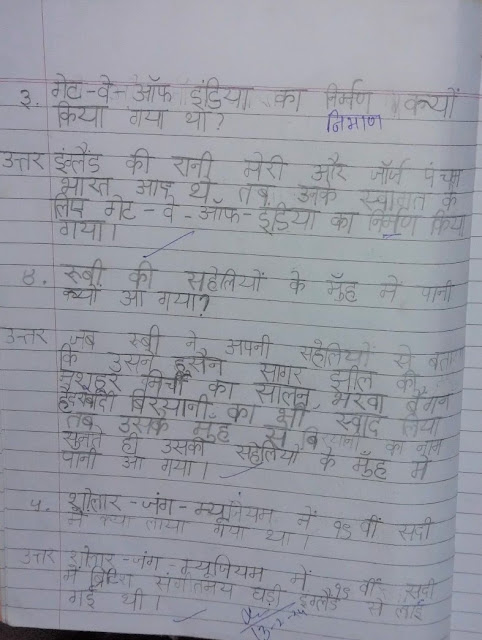 ३. गेट-वे-ऑफ इंडिया का निर्मण क्यों
किया गया था?
निमाण
उत्तर इंग्लैंड की रानी मेरी और जॉर्ज पंचम
भारत आए थे तब उनके स्वागत के
लिए गेट-वे-ऑफ-इंडिया का निर्मण किया
गया।
४. रुबी की सहेलियों के मुँह में पानी
क्यों आ गया?
उत्तर जब रुबी ने अपनी सहेलियों से
कि उसने हुसैन सागर झील की
मिर्ची का सालन, भरवा बैंगन
बिरयानी का भी स्वाद लिया
तब उसके मुँह से बिरयानी का नाम
सुनते ही उसकी सहेलियों के मुँह में
पानी आ गया।
५. जंग-म्यूजियम में १९ वीं सदी
में क्या लाया गया था।
उत्तर जंग-म्यूजियम में १९ वीं सदी
में ब्रिटिश संगीतमय घड़ी इंग्लैंड से लाई
गई थी।